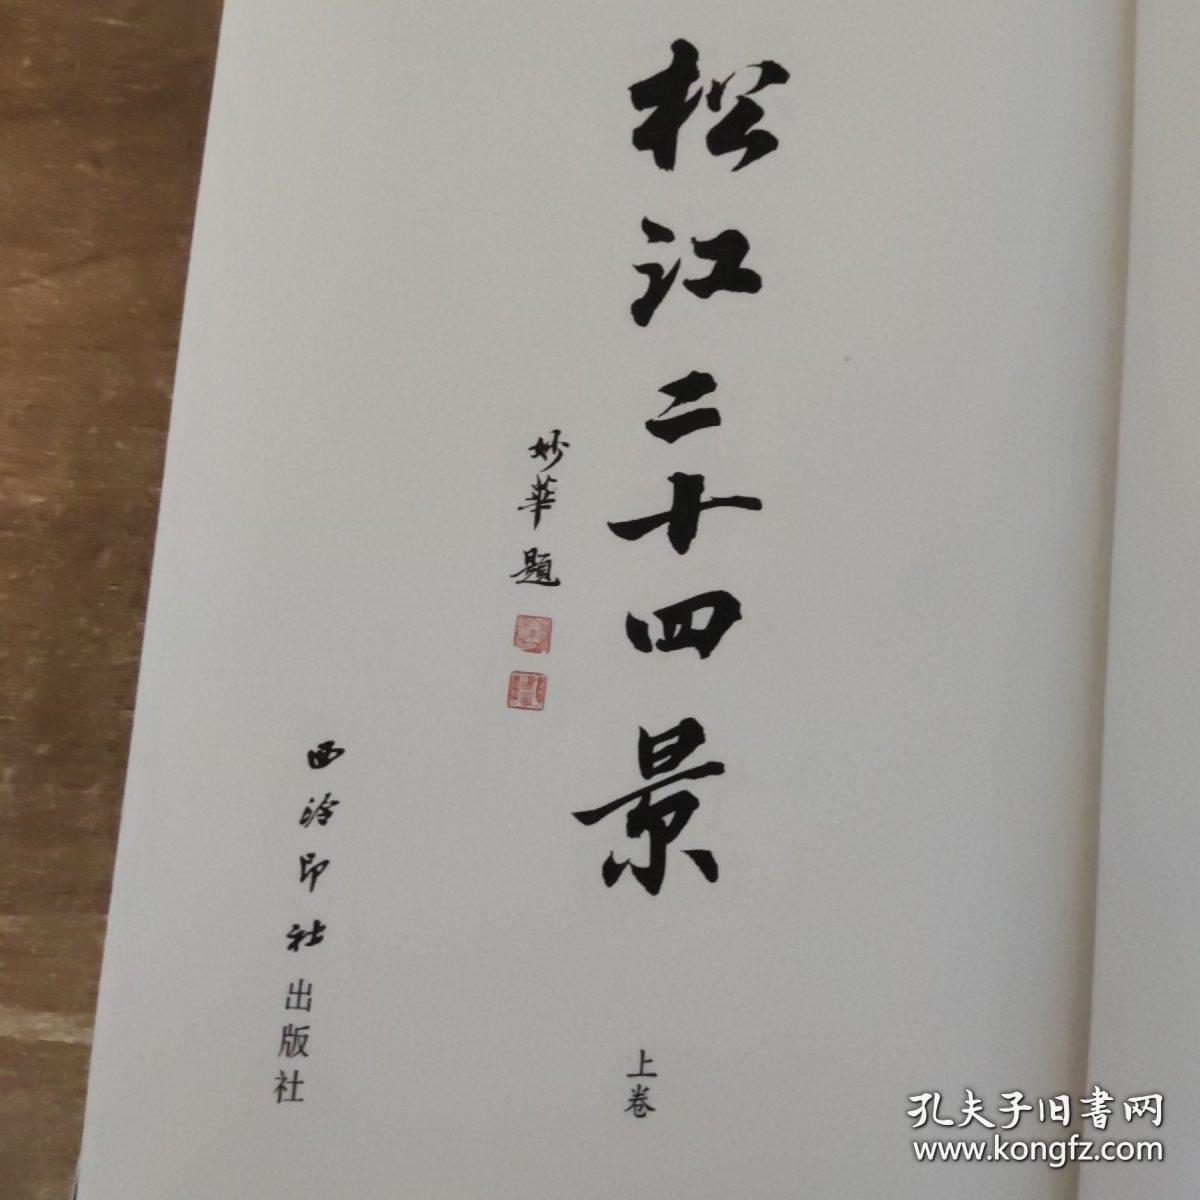 松江二十四景
上卷
妙華題
西泠印社出版社
孔夫子旧書网
www.kongfz.com